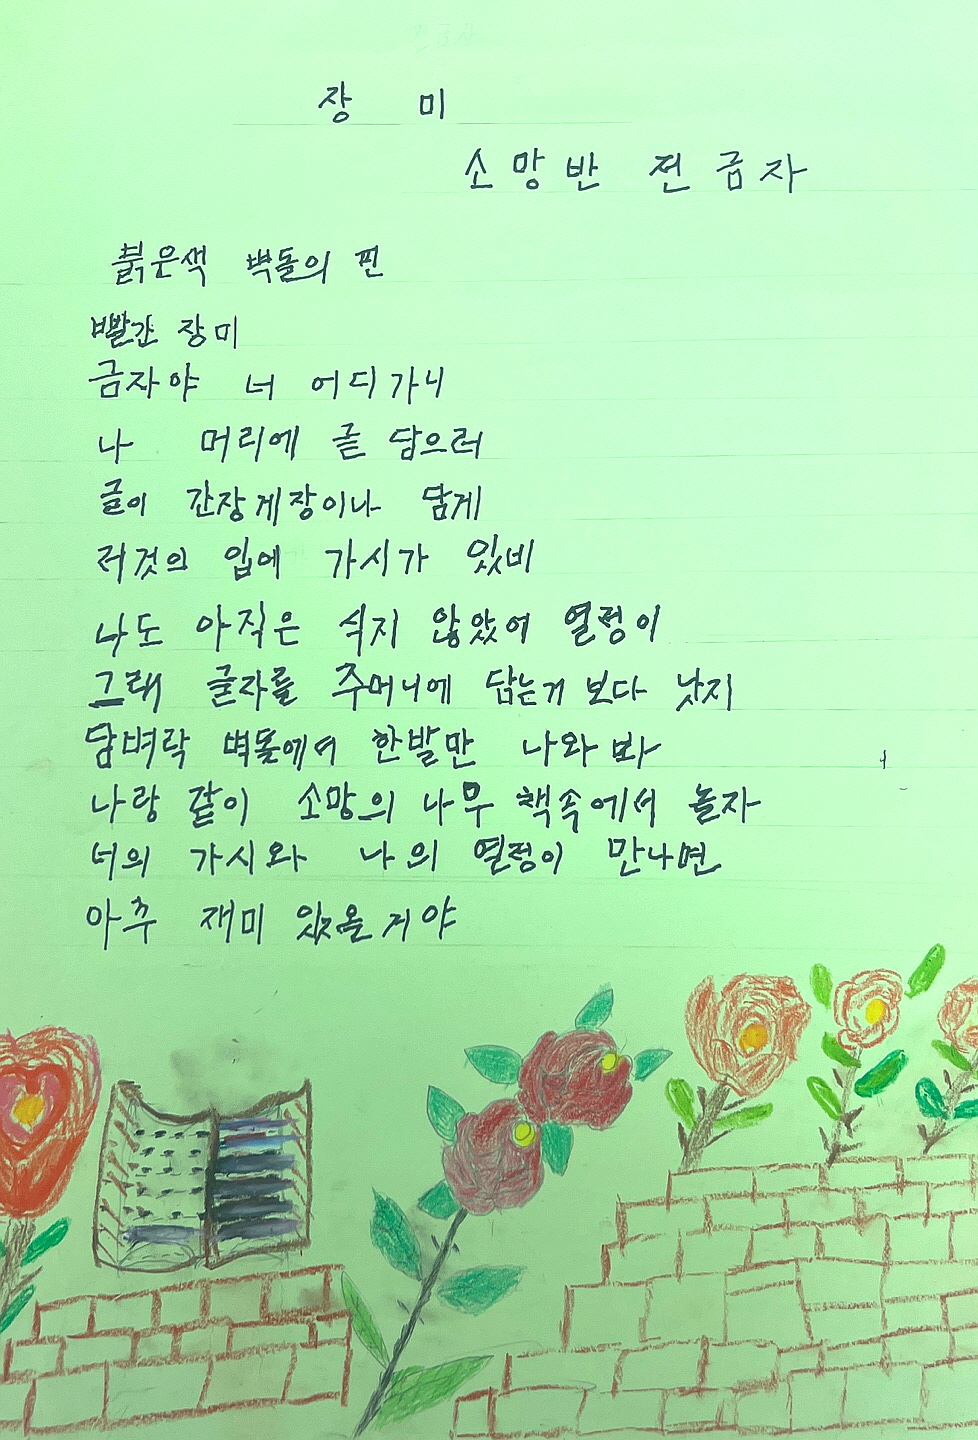 장 미
소망반 전금자
붉은색 벽돌의 핀
빨간 장미
금자야 너 어디가니
나 머리에 글 담으러
글이 간장게장이나 담게
저것의 입에 가시가 있비
나도 아직은 식지 않았어 열정이
그래 글자를 주머니에 담는거 보다 낫지
담벼락 벽돌에서 한발만 나와 봐
나랑 같이 소망의 나무 책속에서 놀자
너의 가시와 나의 열정이 만나면
아주 재미 있을 거야